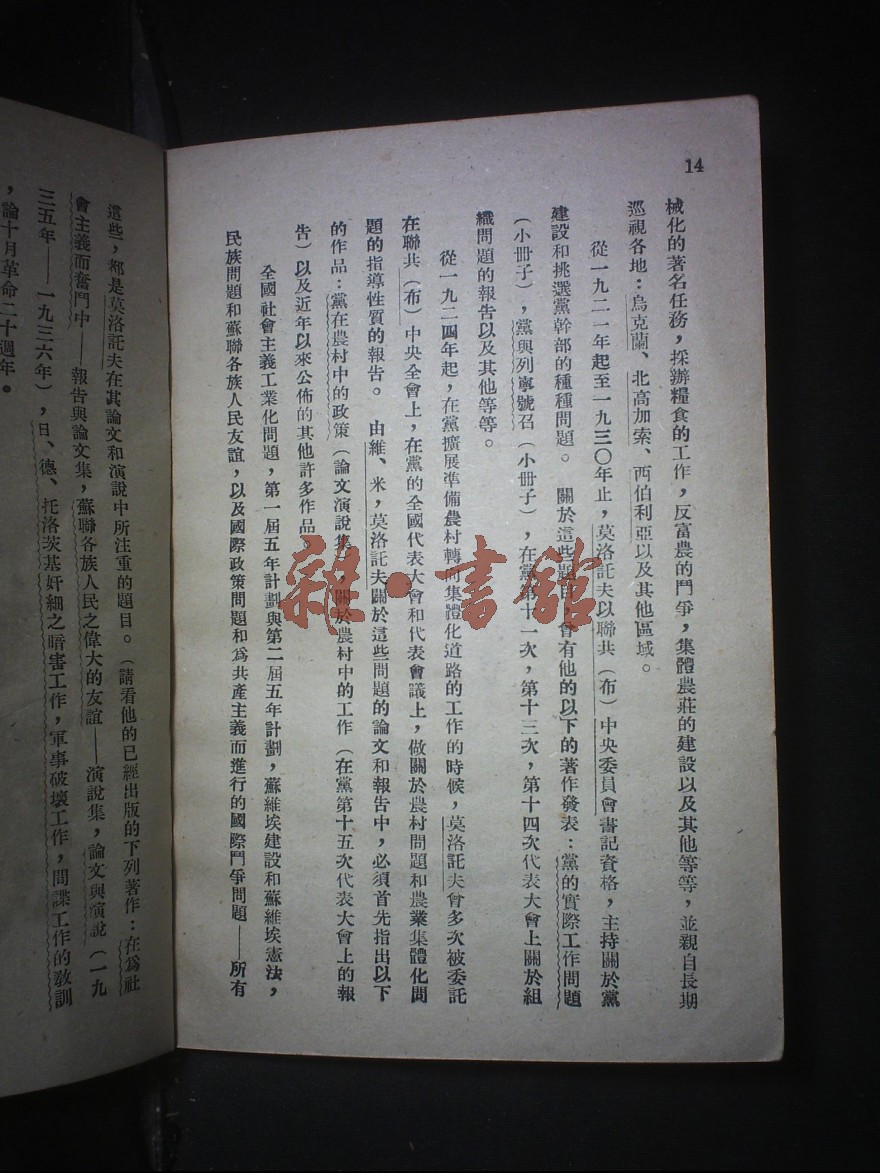 14
械化的著名任務，採辦糧食的工作，反富農的鬥爭，集體農莊的建設以及其他等等，並親自長期
巡視各地：烏克蘭、北高加索、西伯利亞以及其他區域。
從一九二一年起至一九三〇年止，莫洛託夫以聯共（布）中央委員會書記資格，主持關於黨
建設和挑選黨幹部的種種問題。關於這些題目，曾有他的以下的著作發表：黨的實際工作問題
（小冊子），黨與列寧號召（小冊子），在黨第十一次，第十三次，第十四次代表大會上關於組
織問題的報告以及其他等等。
從一九二四年起，在黨擴展準備農村轉向集體化道路的工作的時候，莫洛託夫曾多次被委託
在聯共（布）中央全會上，在黨的全國代表大會和代表會議上，做關於農村問題和農業集體化問
題的指導性質的報告。由維、米，莫洛託夫關於這些問題的論文和報告中，必須首先指出以下
的作品：黨在農村中的政策（論文演說集），關於農村中的工作（在黨第十五次代表大會上的報
告）以及近年以來公佈的其他許多作品。
全國社會主義工業化問題，第一屆五年計劃與第二屆五年計劃，蘇維埃建設和蘇維埃憲法，
民族問題和蘇聯各族人民友誼，以及國際政策問題和爲共產主義而進行的國際鬥爭問題——所有
這些，都是莫洛託夫在其論文和演說中所注重的題目。（請看他的已經出版的下列著作：在爲社
會主義而奮鬥中——報告與論文集，蘇聯各族人民之偉大的友誼——演說集，論文與演說（一九
三五年——一九三六年），日、德、托洛茨基奸細之暗害工作，軍事破壞工作，間諜工作的教訓
，論十月革命二十週年。
雜·書館